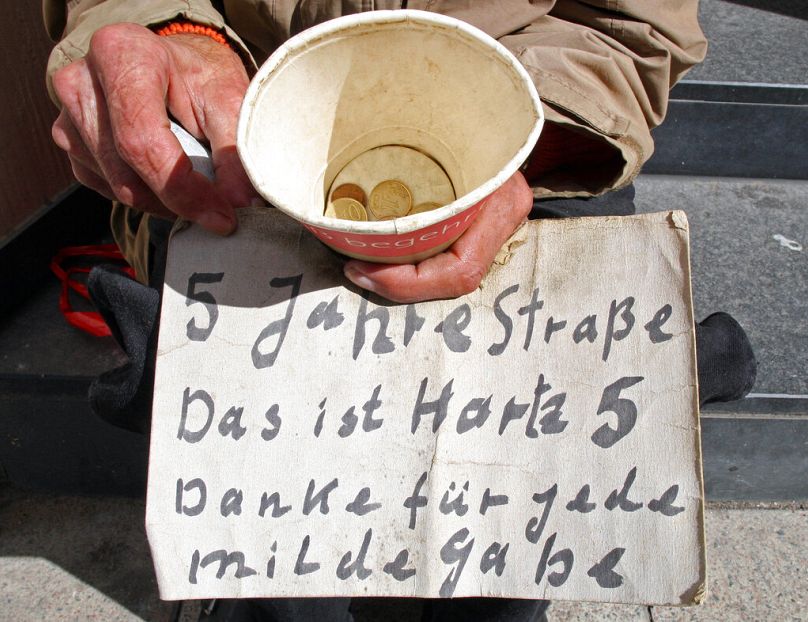 begehr
5 Jahre Straße
Das ist Hartz 5
Danke für jede
milde Gabe